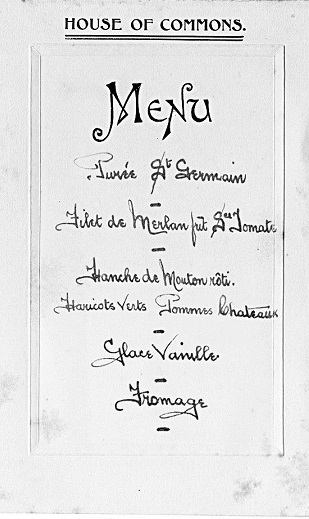 HOUSE OF COMMONS.
Menu
Purée St Germain
Filet de Merlan frit Sce Tomate
Hanche de Mouton rôti.
Haricots Verts Pommes Chateaux
Glace Vainille
Fromage